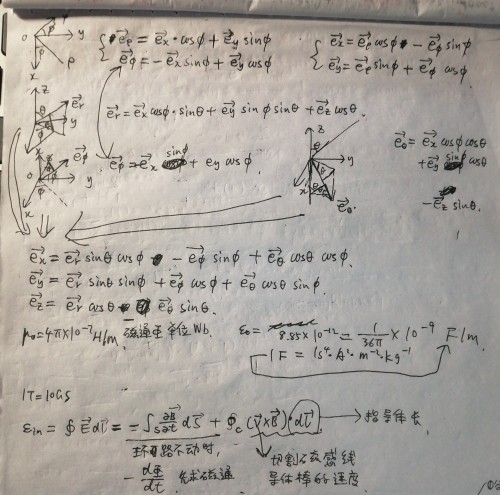 e⃗ρ = e⃗x·cosϕ + e⃗y sinϕ
e⃗ϕ = -e⃗x sinϕ + e⃗y cosϕ
e⃗x = e⃗ρ cosϕ - e⃗ϕ sinϕ
e⃗y = e⃗ρ sinϕ + e⃗ϕ cosϕ
e⃗r = e⃗x cosϕ·sinθ + e⃗y sinϕ sinθ + e⃗z cosθ.
e⃗ϕ = -e⃗x sinϕ + ey cosϕ
e⃗θ = e⃗x cosϕ cosθ
+ e⃗y sinϕ cosθ
- e⃗z sinθ.
e⃗x = e⃗r sinθ cosϕ - e⃗ϕ sinϕ + e⃗θ cosθ cosϕ.
e⃗y = e⃗r sinθ sinϕ + e⃗ϕ cosϕ + e⃗θ cosθ sinϕ.
e⃗z = e⃗r cosθ - e⃗θ sinθ.
μ0=4π×10⁻⁷ H/m. 磁通量单位Wb.
ε0= 8.85×10⁻¹² = 1/36π ×10⁻⁹ F/m.
1F = 1s⁴·A²·m⁻²·kg⁻¹
1T=10GS
εin = ∮E⃗dl⃗ = -∫s ∂B⃗/∂t dS⃗ + ∮c (v⃗×B⃗)·dl⃗ → 指导体长
环路不动时, 切割磁感线
-dΦ/dt 先求磁通 导体棒的速度.